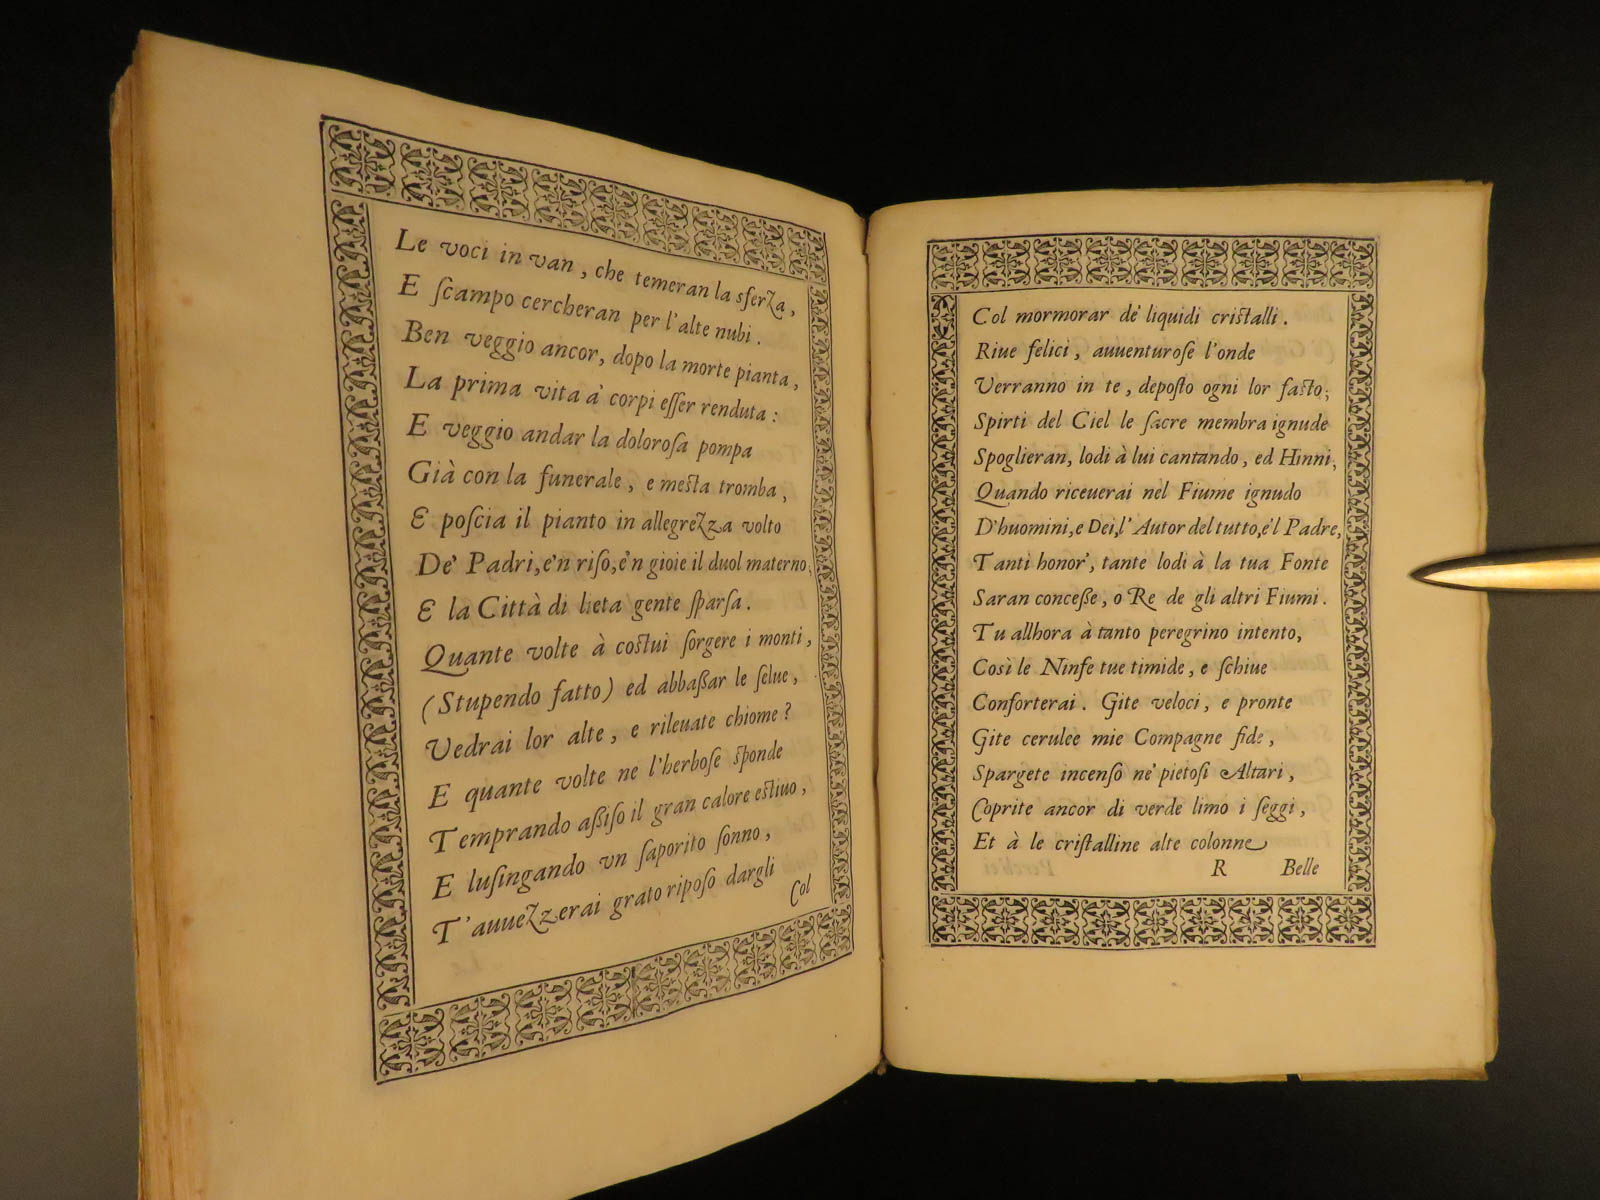 Le voci in van, che temeran la sferza,
E ſcampo cercheran per l'alte nubi.
Ben veggio ancor, dopo la morte pianta,
La prima vita à corpi eſſer renduta:
E veggio andar la doloroſa pompa
Già con la funerale, e mesta tromba,
E poſcia il pianto in allegrezza volto
De' Padri, e'n riſo, e'n gioie il duol materno,
E la Città di lieta gente ſparſa.
Quante volte à costui ſorgere i monti,
(Stupendo fatto) ed abbaßar le ſelue,
Vedrai lor alte, e rileuate chiome?
E quante volte ne l'herboſe ſponde
Temprando aßiſo il gran calore estiuo,
E luſingando vn ſaporito ſonno,
T'auuezzerai grato ripoſo dargli
Col
Col mormorar de' liquidi cristalli.
Riue felici, auuenturoſe l'onde
Verranno in te, deposto ogni lor fasto;
Spirti del Ciel le ſacre membra ignude
Spoglieran, lodi à lui cantando, ed Hinni,
Quando riceuerai nel Fiume ignudo
D'huomini, e Dei, l'Autor del tutto, e'l Padre,
Tanti honor', tante lodi à la tua Fonte
Saran conceße, o Re de gli altri Fiumi.
Tu allhora à tanto peregrino intento,
Così le Ninfe tue timide, e ſchiue
Conforterai. Gite veloci, e pronte
Gite cerulee mie Compagne fide,
Spargete incenſo ne' pietosi Altari,
Coprite ancor di verde limo i ſeggi,
Et à le cristalline alte colonne
R Belle